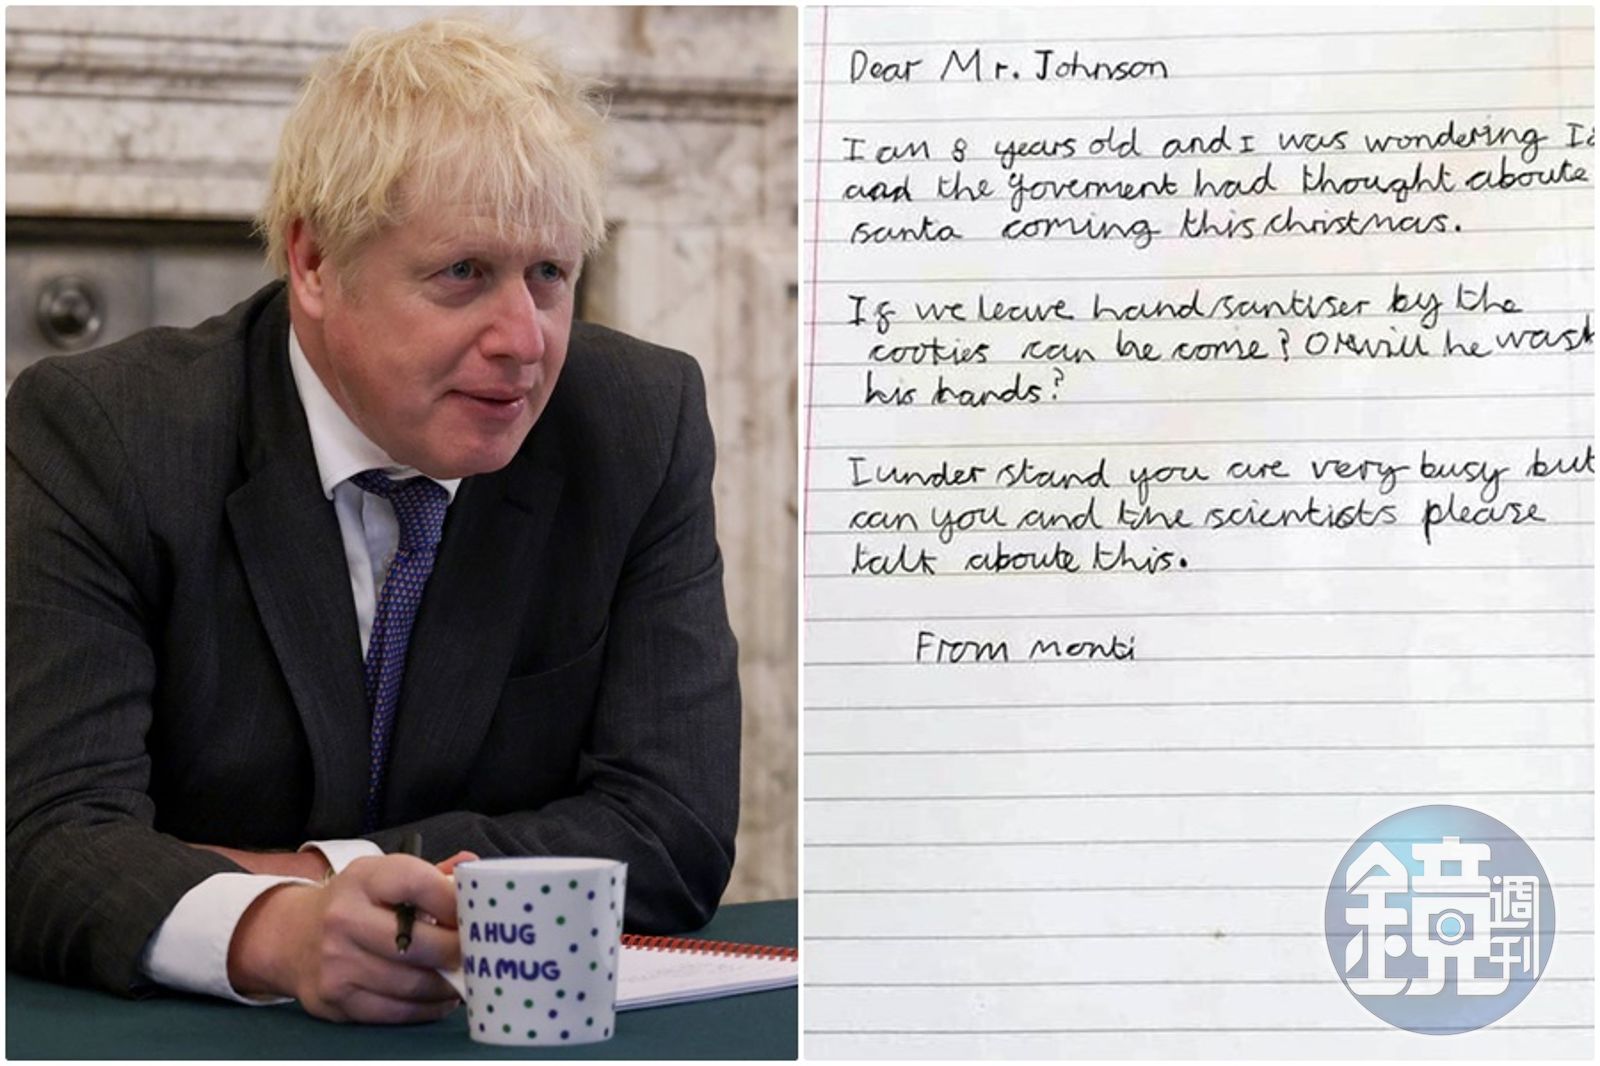 A HUG
IN A MUG
Dear Mr. Johnson
I am 8 years old and I was wondering If
and the goverment had thought aboute
santa coming this christmas.
If we leave hand sanitiser by the
cookies can he come? Or will he wash
his hands?
I under stand you are very busy but
can you and the scientists please
talk aboute this.
From monti
鏡週刊